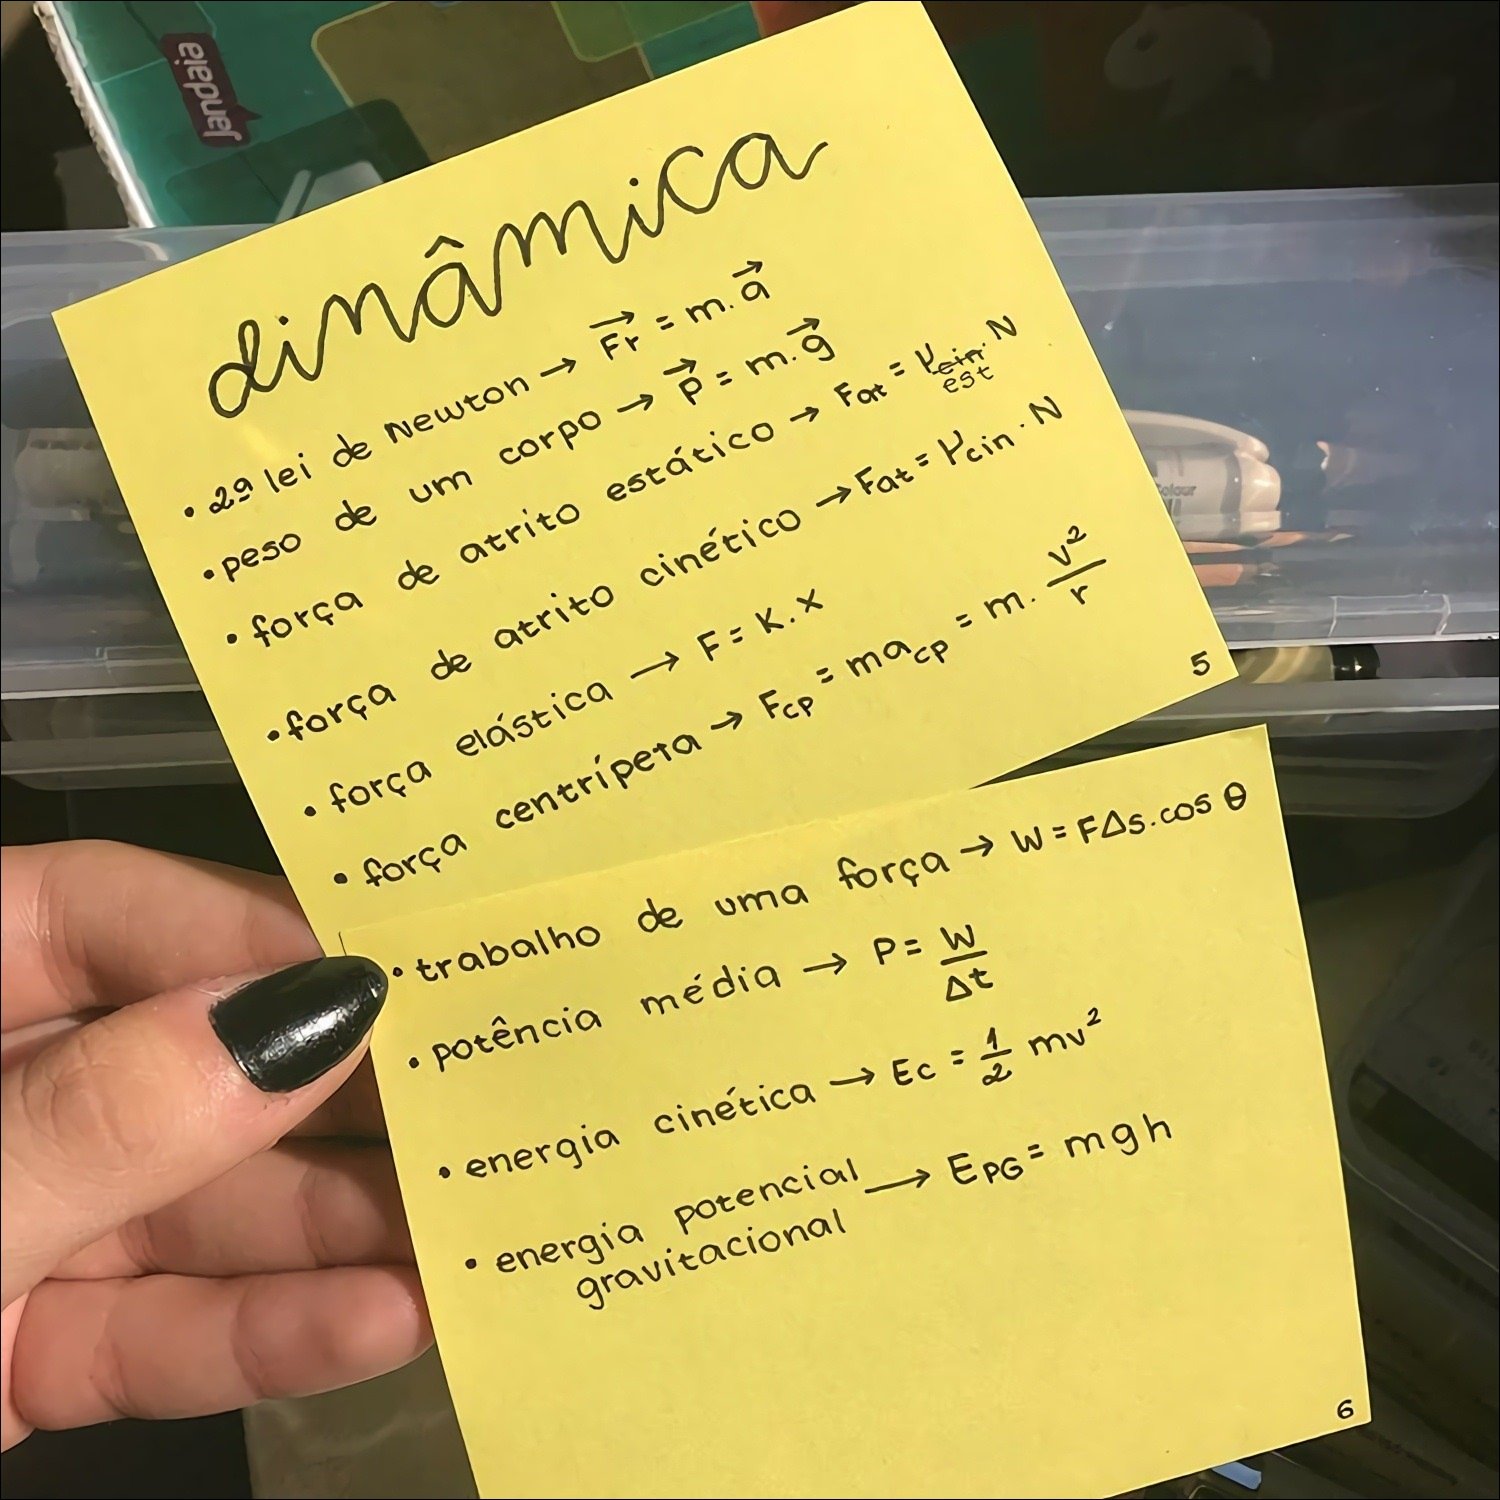 jandaia
dinâmica
• 2ª lei de Newton → F⃗r = m. a⃗
• peso de um corpo → P⃗ = m. g⃗
• força de atrito estático → Fat = μ~~cin~~ est . N
• força de atrito cinético → Fat = μcin . N
• força elástica → F = K. x
• força centrípeta → Fcp = macp = m. v²/r
5
• trabalho de uma força → W = FΔs.cos θ
• potência média → P = W/Δt
• energia cinética → Ec = 1/2 mv²
• energia potencial → EPG = mgh
gravitacional
6